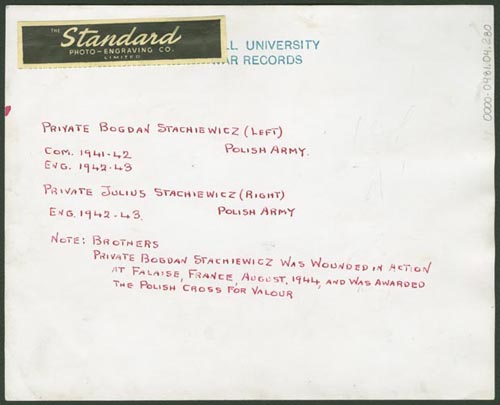 THE
Standard
PHOTO-ENGRAVING CO.
LIMITED
LL UNIVERSITY
WAR RECORDS
0000-0481.04.280
PRIVATE BOGDAN STACHIEWICZ (LEFT)
COM. 1941-42 POLISH ARMY.
ENG. 1942-43
PRIVATE JULIUS STACHIEWICZ (RIGHT)
ENG. 1942-43. POLISH ARMY
NOTE: BROTHERS
PRIVATE BOGDAN STACHIEWICZ WAS WOUNDED IN ACTION
AT FALAISE, FRANCE, AUGUST, 1944, AND WAS AWARDED
THE POLISH CROSS FOR VALOUR